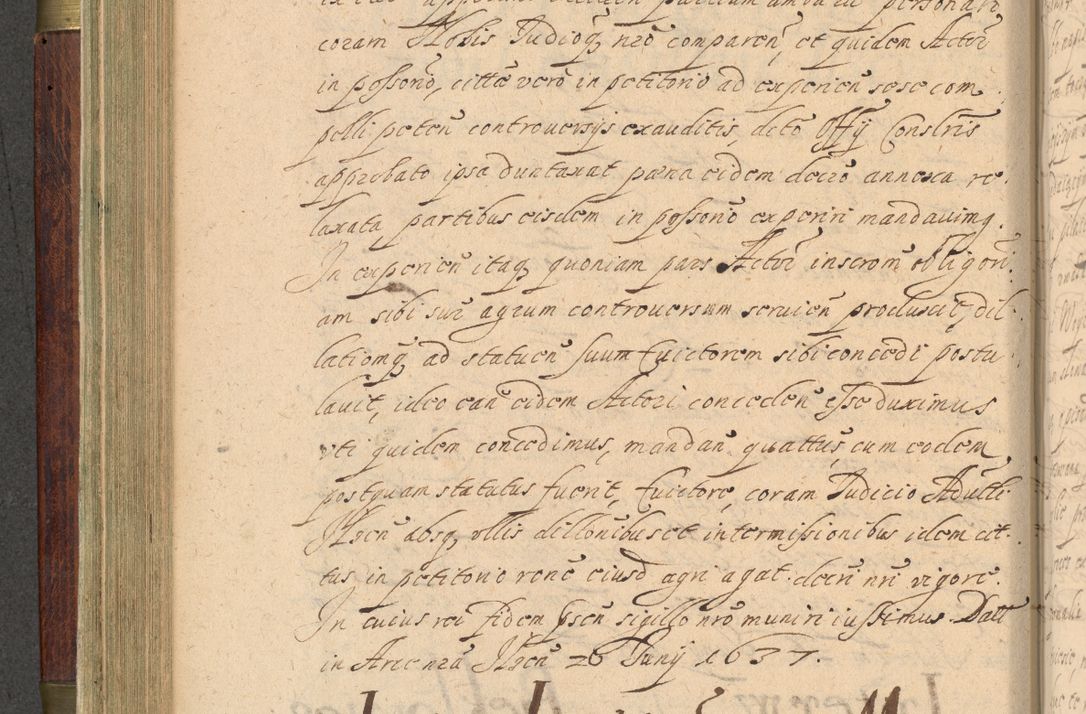 coram Nobis Judioq, nro comparen, et quidem Actor
in possorio, citta vero in petitorio ad experien sese com
pelli peten controuersijs exauditis, deto Offij Conslris
approbato ipsa duntaxat pæna eidem decro annexa re
laxata partibus eisdem in possorio experiri mandauimq.
In experien itaq, quoniam pars Actor inscrom obligori
am sibi sur agrum controuersum seruien produxit, dil
lationemq ad statuen suum Euictorem sibi concedi postu
lauit, ideo ean eidem Actori conceden esse duximus
vti quidem concedimus, mandan quattus cum eodem
postquam statutus fuerit, Euictore, coram Judicio
absq, vllis dillonibus et intermissionibus idem cit
tus in petitorio rone eiusd agri agat decri nri vigore.
In cuius rei fidem psen sigillo nro muniri iussimus. Datt
in Arce nra 26 Junij 1637.